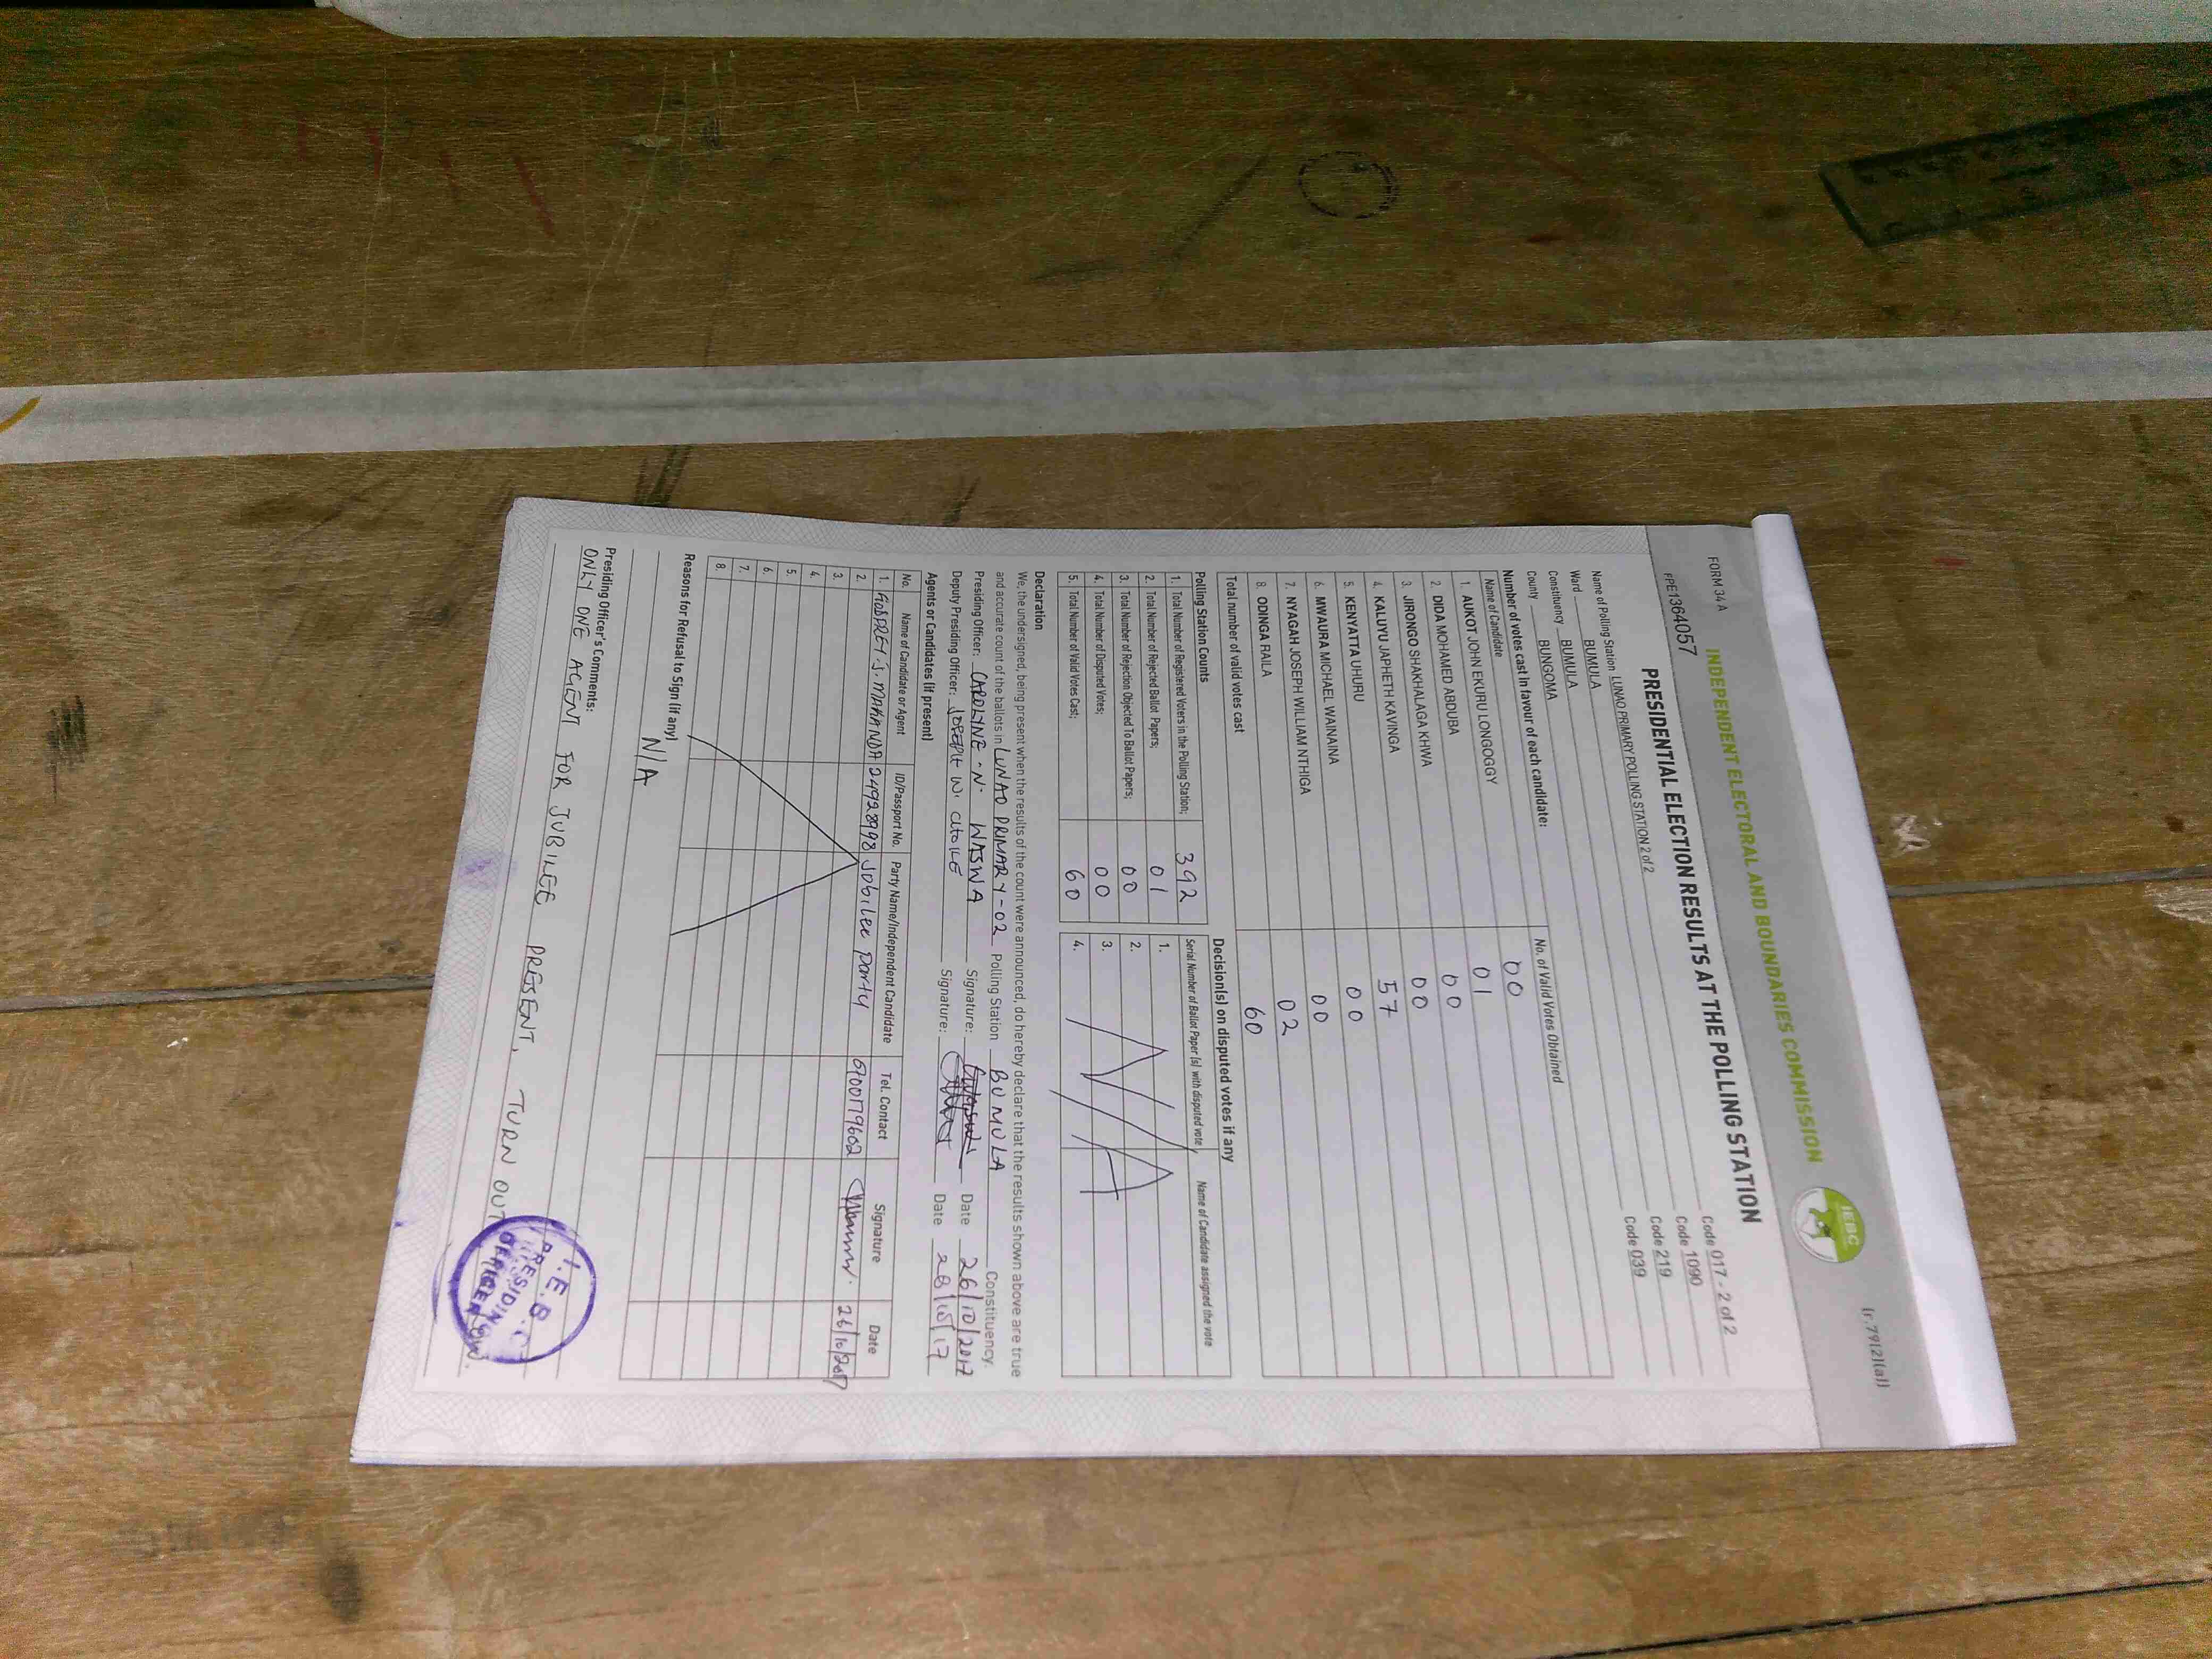 (r.79(2)(a))
FORM 34 A
INDEPENDENT ELECTORAL AND BOUNDARIES COMMISSION
IEBC
PRESIDENTIAL ELECTION RESULTS AT THE POLLING STATION
PPE1364057
Name of Polling Station LUNAO PRIMARY POLLING STATION 2 of 2 Code 017 - 2 of 2
Ward BUMULA Code 1090
Constituency BUMULA Code 219
County BUNGOMA Code 039
Number of votes cast in favour of each candidate:
Name of Candidate No. of Valid Votes Obtained
1. AUKOT JOHN EKURU LONGOGGY 00
2. DIDA MOHAMED ABDUBA 01
3. JIRONGO SHAKHALAGA KHWA 00
4. KALUYU JAPHETH KAVINGA 00
5. KENYATTA UHURU 57
6. MWAURA MICHAEL WAINAINA 00
7. NYAGAH JOSEPH WILLIAM NTHIGA 00
8. ODINGA RAILA 02
Total number of valid votes cast 60
Polling Station Counts
1. Total Number of Registered Voters in the Polling Station; 392
2. Total Number of Rejected Ballot Papers; 01
3. Total Number of Rejection Objected To Ballot Papers; 00
4. Total Number of Disputed Votes; 00
5. Total Number of Valid Votes Cast; 60
Decision(s) on disputed votes if any
Serial Number of Ballot Paper (s) with disputed vote Name of Candidate assigned the vote
1.
2.
3.
4.
N/A
Declaration
We, the undersigned, being present when the results of the count were announced, do hereby declare that the results shown above are true
and accurate count of the ballots in LUNAO PRIMARY - 02 Polling Station BUMULA Constituency.
Presiding Officer: CAROLYNE - N. WASWA Signature: Date 26/10/2017
Deputy Presiding Officer: JOSEPH W. Signature: Date 28/10/17
Agents or Candidates (if present)
No. Name of Candidate or Agent ID/Passport No. Party Name/Independent Candidate Tel. Contact Signature Date
1. GODFREY. S. MAKANDA 24928998 Jobilee party 0700179602 26/10/2017
2.
3.
4.
5.
6.
7.
8.
Reasons for Refusal to Sign (if any)
N/A
Presiding Officer's Comments:
ONLY ONE AGENT FOR JUBILEE PRESENT, TURN OUT
I.E.B.C
PRESIDING
OFFICER